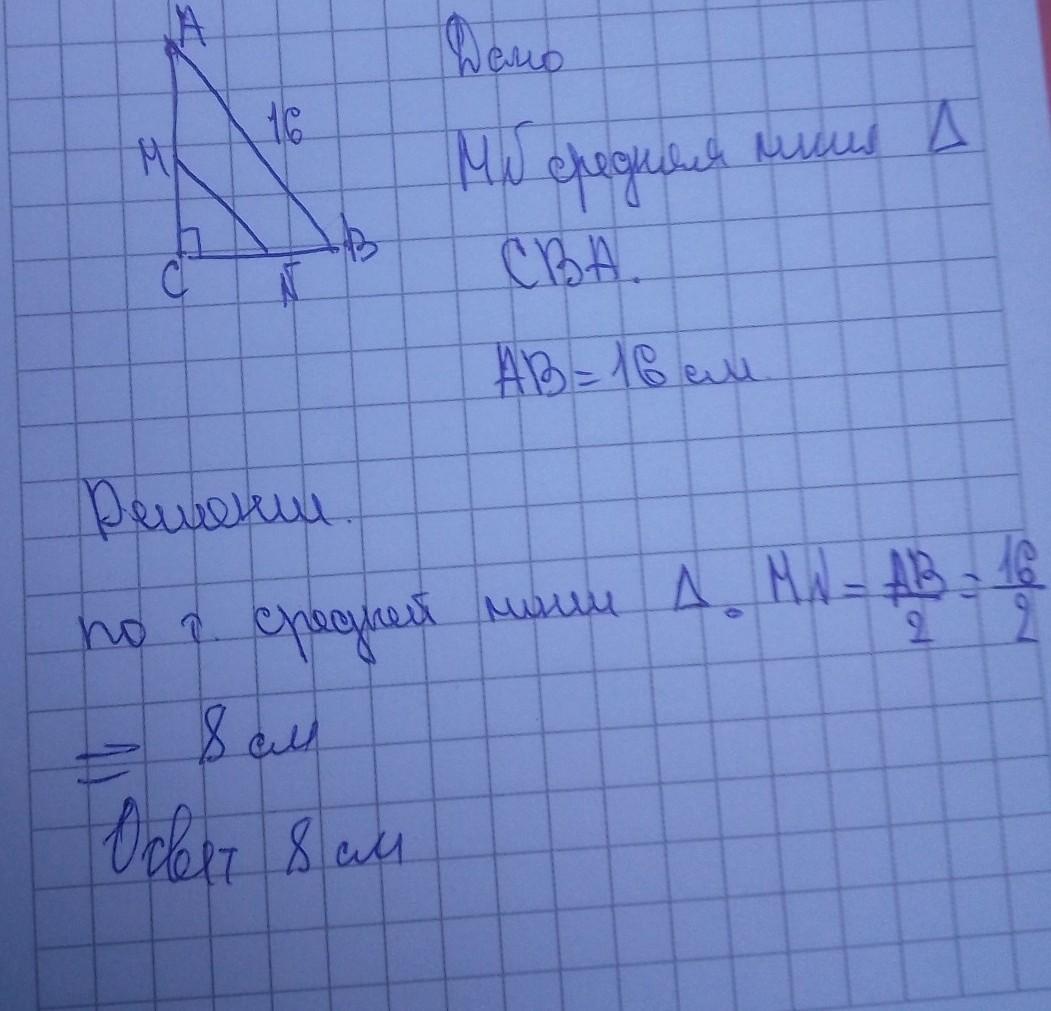 A
16
M
C
N
B
Дано
MN средняя линия Δ
CBA.
AB = 16 см
Решении.
по т. средней линии Δ. MN = AB/2 = 16/2
= 8 см
Ответ 8 см